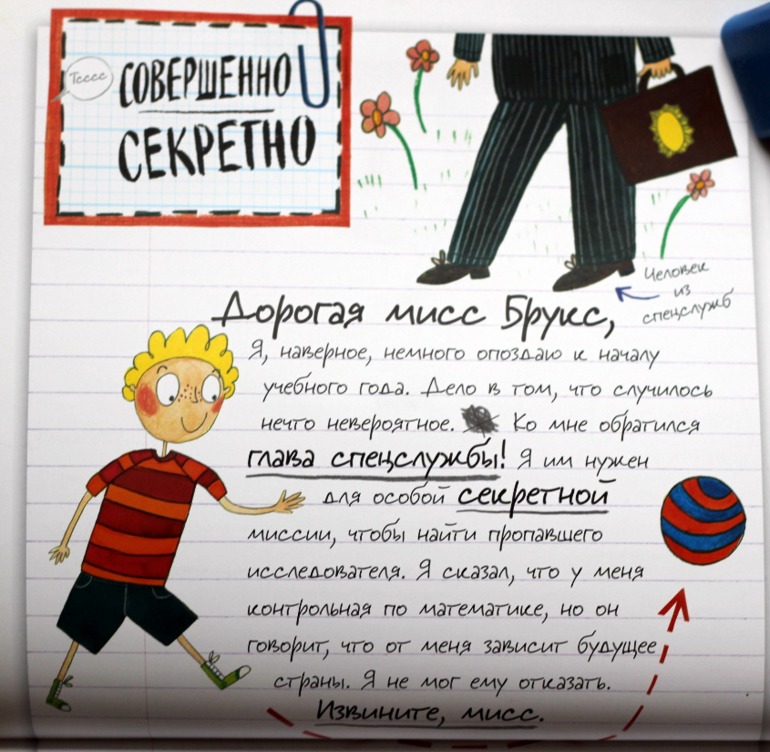 Тсссс
СОВЕРШЕННО
СЕКРЕТНО
Человек
из
спецслужб
Дорогая мисс Брукс,
Я, наверное, немного опоздаю к началу
учебного года. Дело в том, что случилось
нечто невероятное. Ко мне обратился
глава спецслужбы! Я им нужен
для особой секретной
миссии, чтобы найти пропавшего
исследователя. Я сказал, что у меня
контрольная по математике, но он
говорит, что от меня зависит будущее
страны. Я не мог ему отказать.
Извините, мисс.